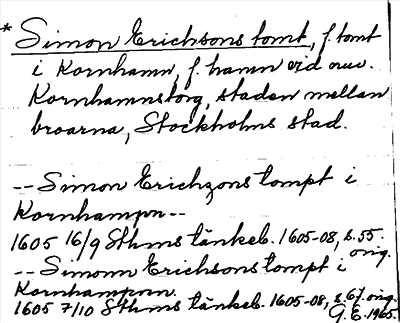 * Simon Erichsons tomt, f. tomt
i Kornhamn, f. hamn vid nuv.
Kornhamnstorg, staden mellan
broarna, Stockholms stad.
-- Simon Erichzons tompt i
Kornhampn --
1605 16/9 Sthms tänkeb. 1605-08, s. 55.
orig.
-- Simonn Erichsons tompt i
Kornhamponn.
1605 7/10 Sthms tänkeb. 1605-08, s. 67. orig.
G. E. 1965.